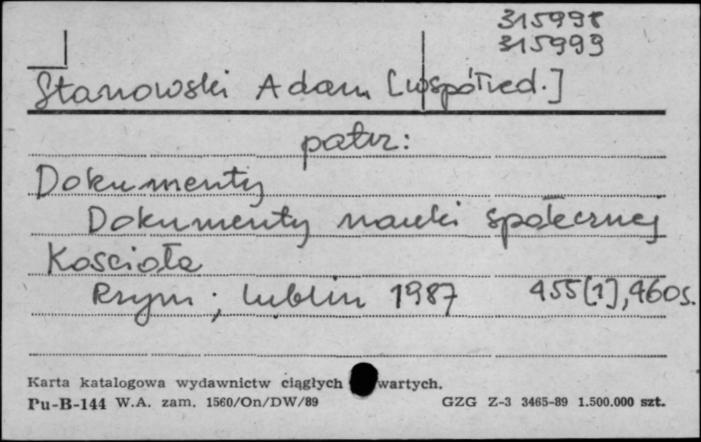 315998
315999
Stanowski Adam [współred.]
patrz:
Dokumenty
Dokumenty nauki społecznej
Kościoła
Rzym ; Lublin 1987 455[1], 460 s.
Karta katalogowa wydawnictw ciągłych wartych.
Pu-B-144 W.A. zam. 1560/On/DW/89 GZG Z-3 3465-89 1.500.000 szt.